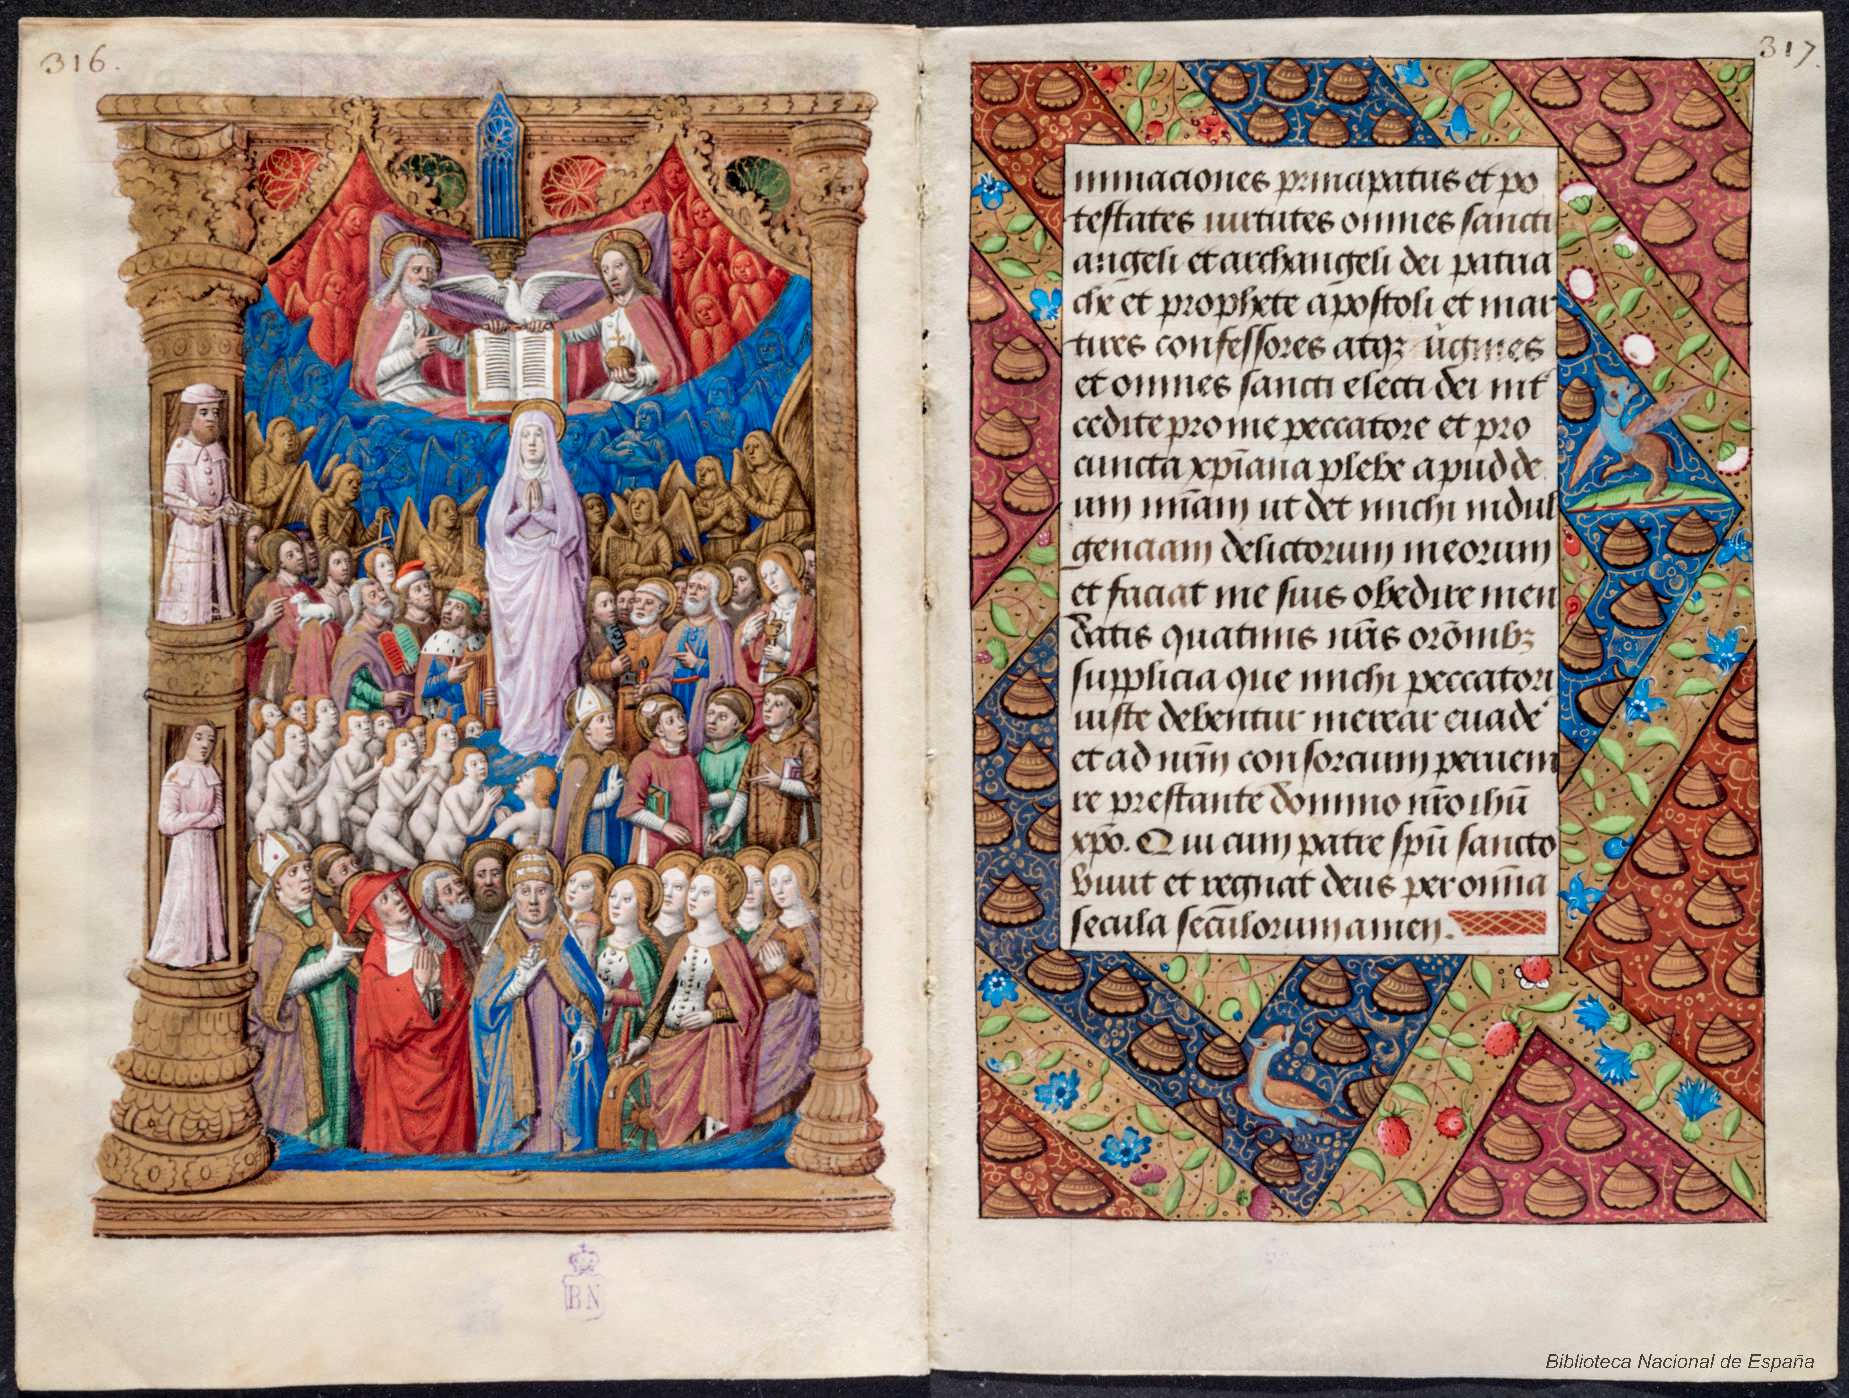 316.
BN
317.
minaciones principatus et po
testates uirtutes omnes sancti
angeli et archangeli dei patriar
che et prophete apostoli et mar
tires confessores atqz uirgines
et omnes sancti electi dei int
cedite pro me peccatore et pro
cuncta xpiana plebe apud de
um nram ut det michi indul
genciam delictorum meorum
et faciat me suis obedire men
datis quatinus nris oronibz
supplicia que michi peccatori
iuste debentur merear euade
et ad nrm consorcium peruem
re prestante domino nro ihu
xpo. Qui cum patre spu sancto
viuit et regnat deus per omnia
secula seculorum amen.
Biblioteca Nacional de España